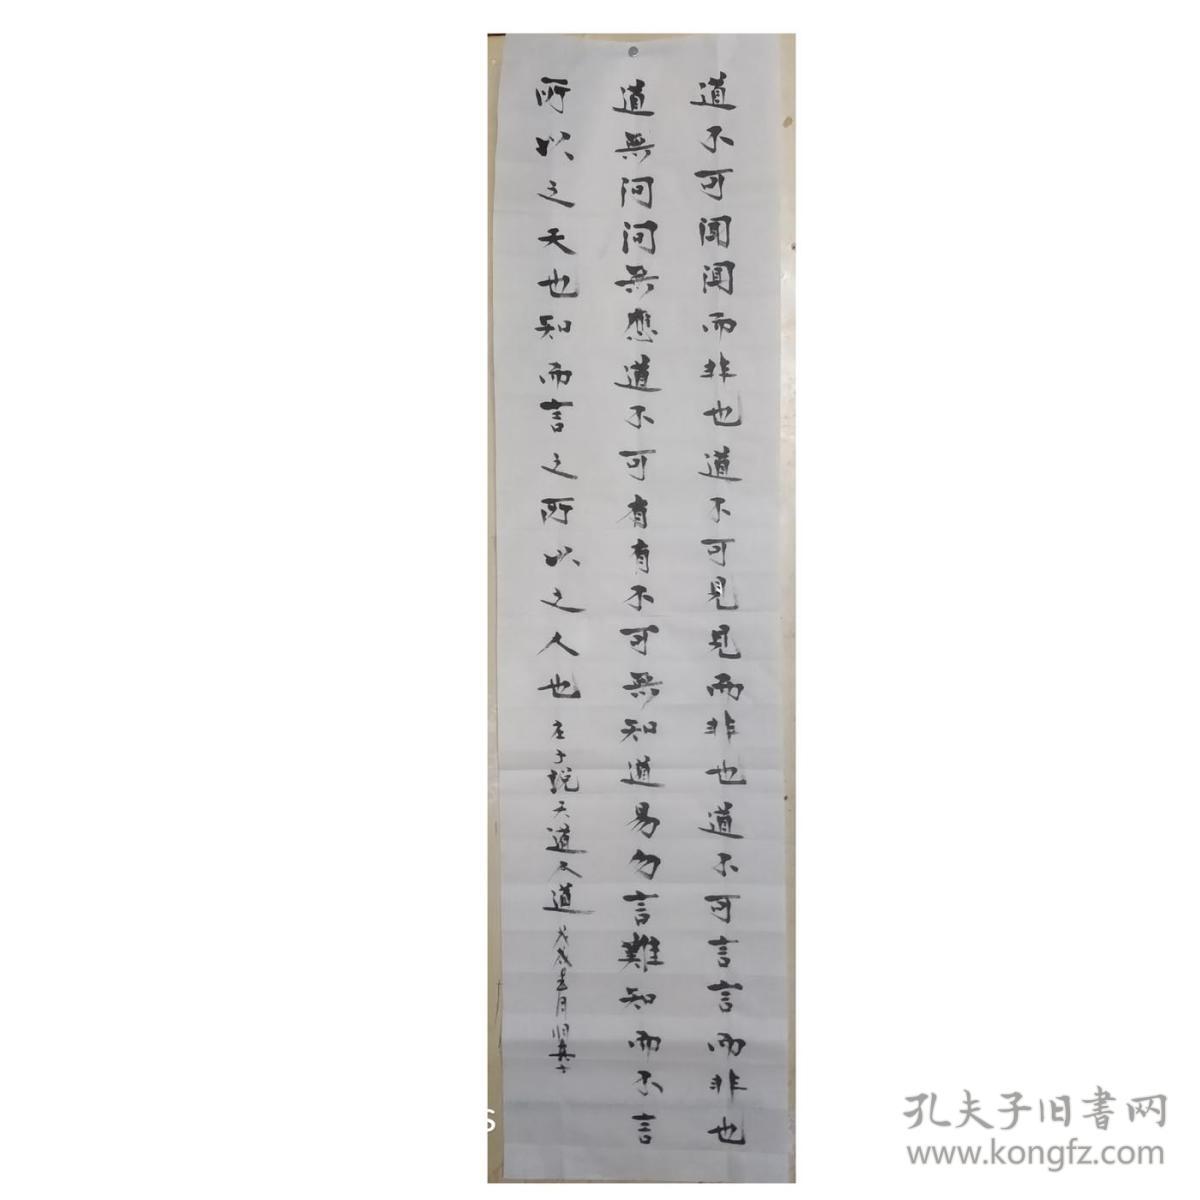 道不可闻闻而非也道不可見見而非也道不可言言而非也
道無问问無應道不可有有不可無知道易勿言難知而不言
所以之天也知而言之所以之人也庄子説天道人道戊戌月归真
孔夫子旧書网
www.kongfz.com
S